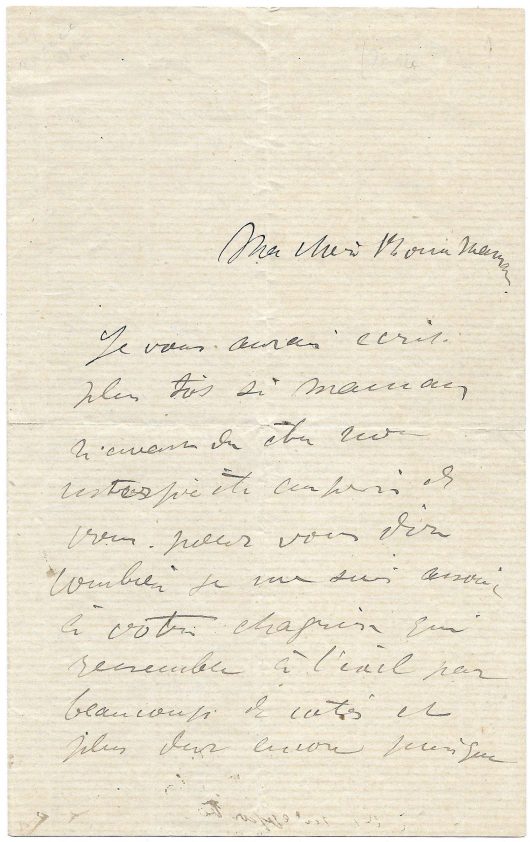 Ma chère Bonne Maman,
Je vous aurais écrit
plus tôt si maman
n'avait du être mon
interprète auprès de
vous pour vous dire
combien je me suis associé
à votre chagrin qui
ressemble à l'exil par
beaucoup de côtés et
plus dur encore puisque